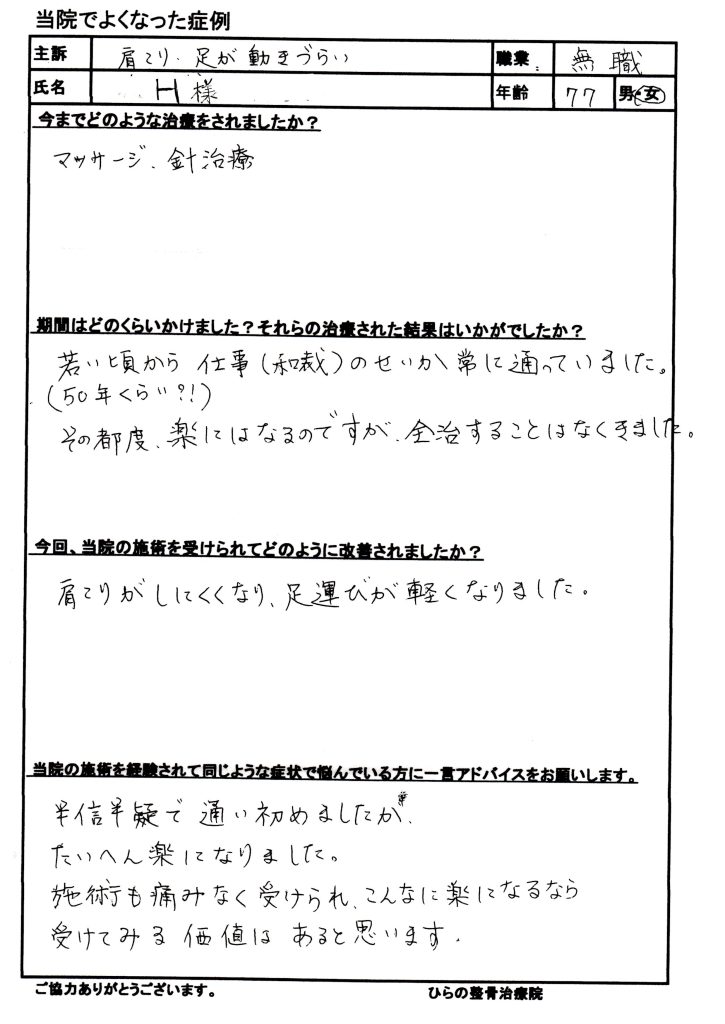 当院でよくなった症例
主訴 肩こり、足が動きづらい 職業 無職
氏名 H様 年齢 77 男・女
今までどのような治療をされましたか？
マッサージ、針治療
期間はどのくらいかけました？それらの治療された結果はいかがでしたか？
若い頃から 仕事（和裁）のせいか 常に通っていました。
（50年くらい?!）
その都度、楽にはなるのですが、全治することはなくきました。
今回、当院の施術を受けられてどのように改善されましたか？
肩こりがしにくくなり、足運びが軽くなりました。
当院の施術を経験されて同じような症状で悩んでいる方に一言アドバイスをお願いします。
半信半疑で 通い初めましたが、
たいへん楽になりました。
施術も痛みなく受けられ、こんなに楽になるなら
受けてみる 価値は あると思います。
ご協力ありがとうございます。 ひらの整骨治療院